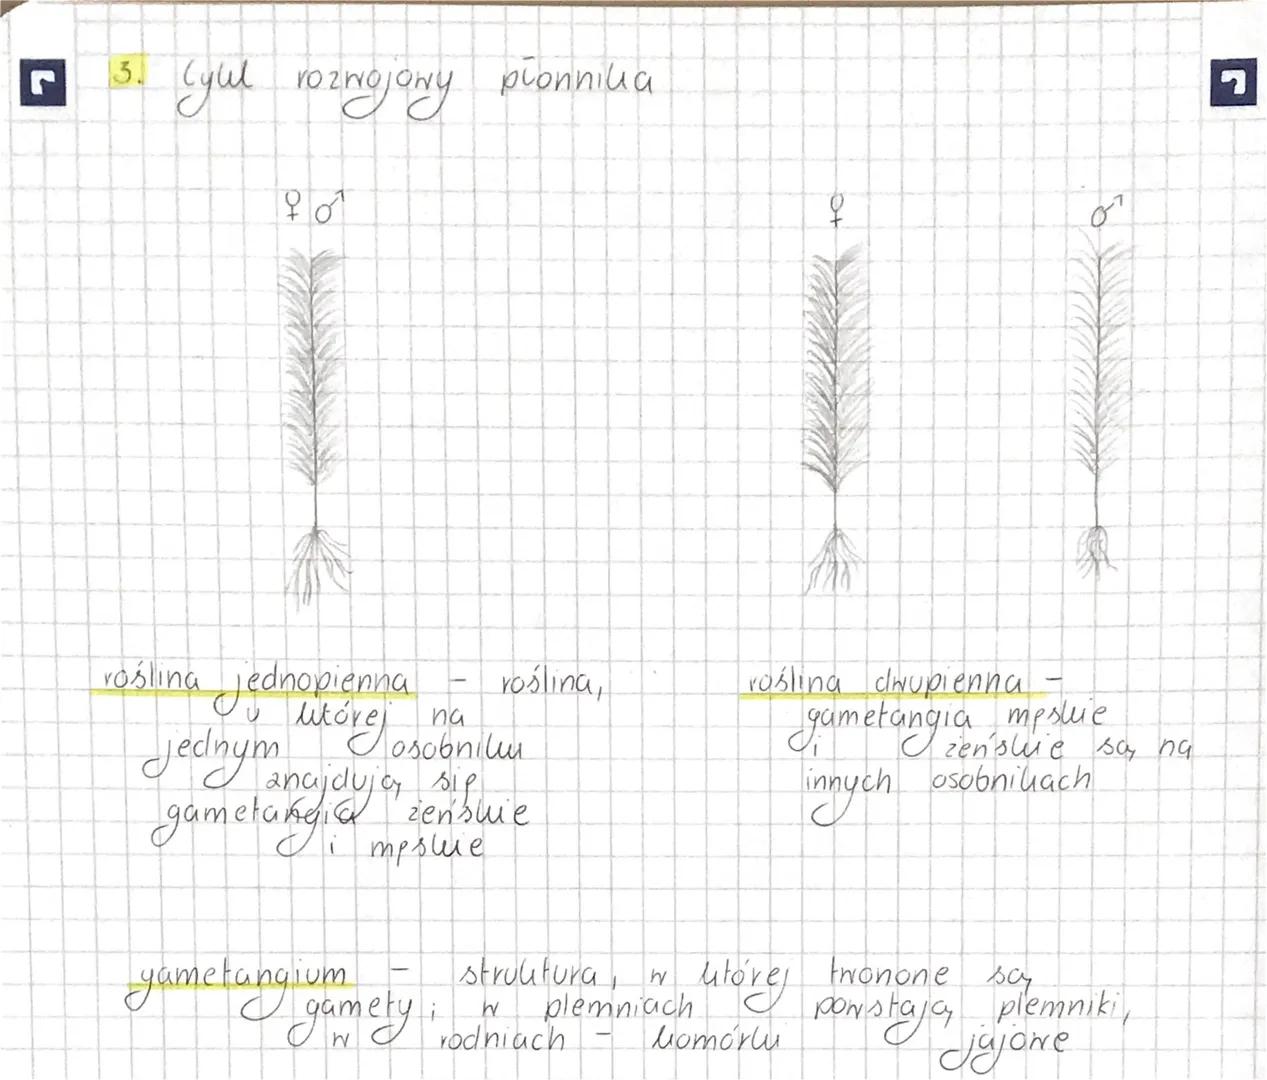 3. Cykl rozwojowy płonnika
♀ ♂
♀
♂
roślina jednopienna - roślina,
u której na
jednym osobniku
znajdują się
gametangia żeńskie
i męskie
roślina dwupienna -
gametangia męskie
i żeńskie są na
innych osobnikach
gametangium - struktura, w której tworzone są
gamety; w plemniach powstają plemniki,
w rodniach - komórki jajowe